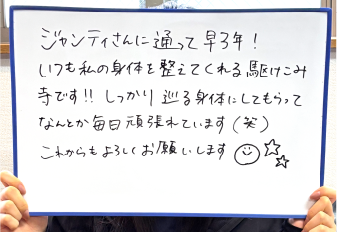 ジャンティさんに通って早3年!
いつも私の身体を整えてくれる駆けこみ
寺です!! しっかり巡る身体にしてもらって
なんとか毎日頑張れています(笑)
これからもよろしくお願いします